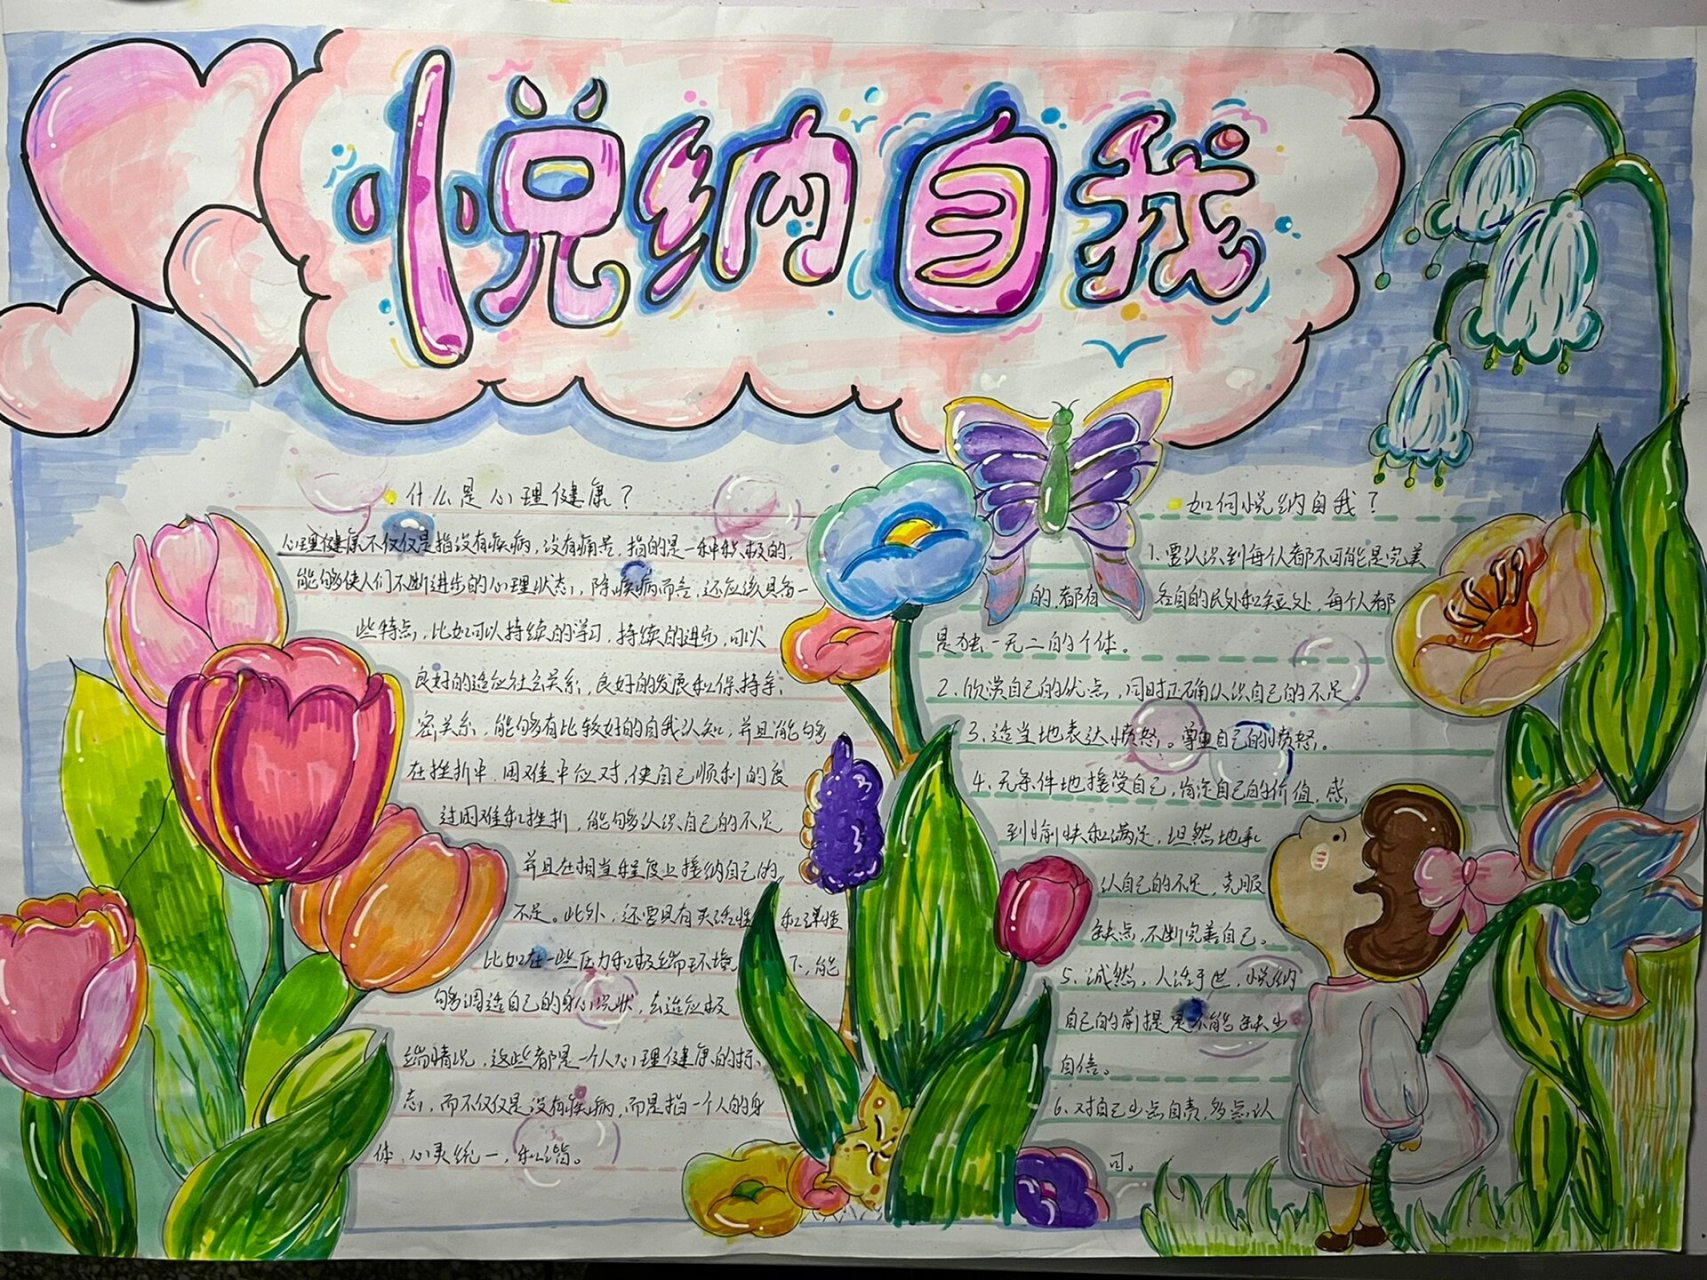 悦纳自我
什么是心理健康？
心理健康不仅仅是指没有疾病，没有痛苦，指的是一种积极的，
能够使人们不断进步的心理状态，除疾病而言，还应该具备一
些特点，比如可以持续的学习，持续的进步，可以
良好的适应社会关系，良好的发展和保持亲
密关系，能够有比较好的自我认知，并且能够
在挫折中，困难中应对，使自己顺利的度
过困难和挫折，能够认识自己的不足
并且在相当程度上接纳自己的
不足。此外，还要具有灵活性和弹性
比如在一些压力和极端环境下，能
够调适自己的身心现状，去适应极
端情况，这些都是一个人心理健康的标
志，而不仅仅是没有疾病，而是指一个人的身
体，心灵统一，和谐。
如何悦纳自我？
1.要认识到每个人都不可能是完美
的，都有各自的长处和短处，每个人都
是独一无二的个体。
2.欣赏自己的优点，同时正确认识自己的不足。
3.适当地表达愤怒。尊重自己的愤怒。
4.无条件地接受自己，肯定自己的价值，感
到愉快和满足，坦然地承
认自己的不足，克服
缺点，不断完善自己。
5.诚然，人活于世，悦纳
自己的前提是不能缺少
自信。
6.对自己少点自责，多点认
可。